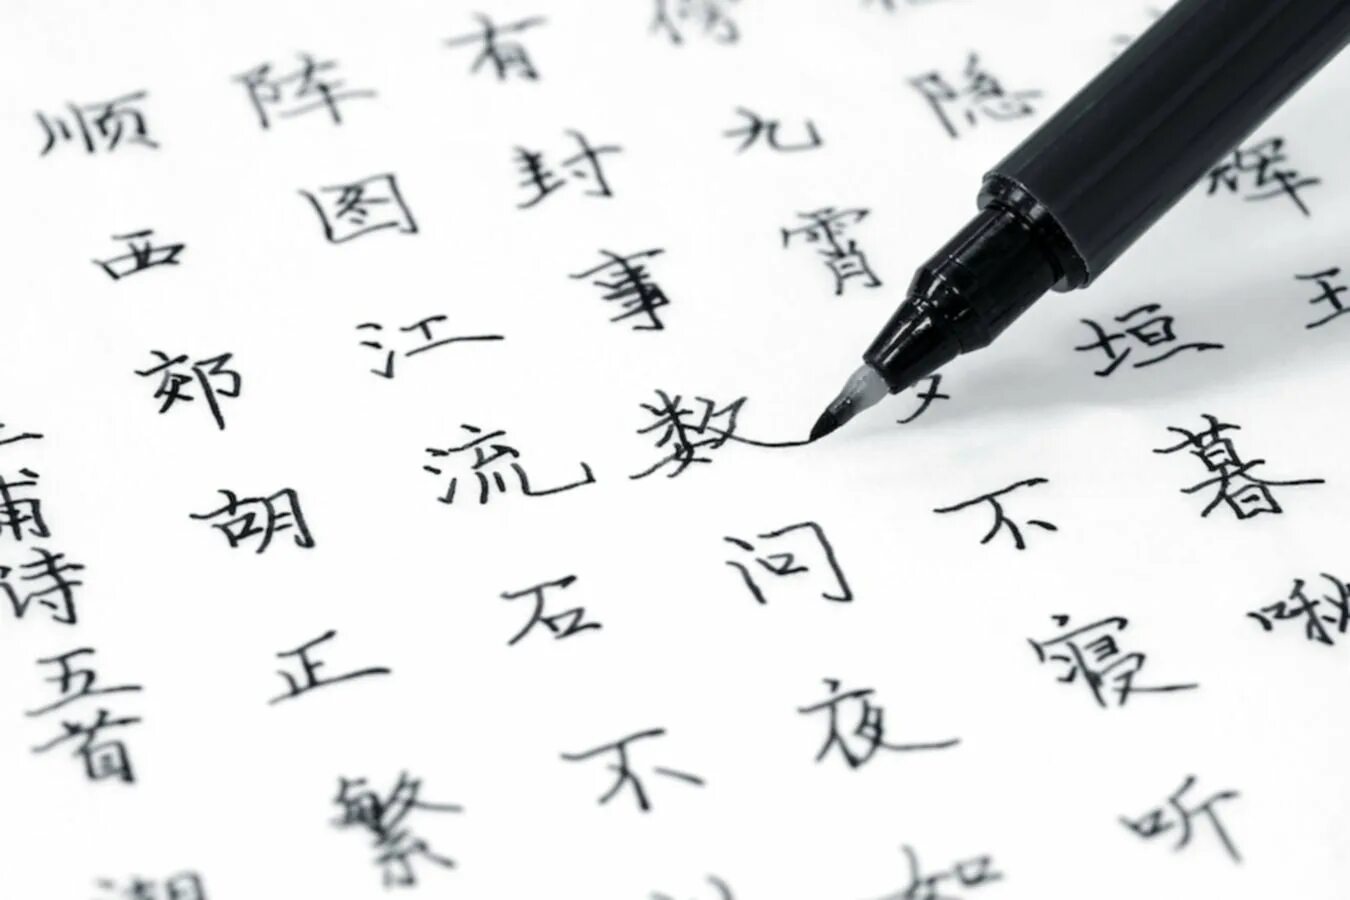 辉王
隐垣暮啾
傍九霄不寝听
有封事数问夜如
阵图江流石不
顺西郊胡正繁
甫诗五首